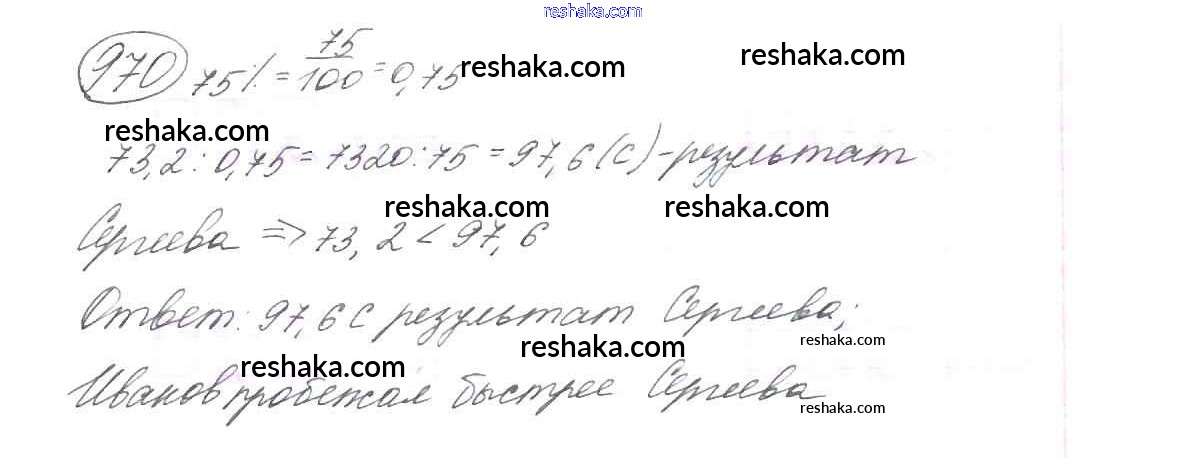 reshaka.com
970 75% = 75/100 = 0,75 reshaka.com reshaka.com
reshaka.com
73,2 : 0,75 = 7320 : 75 = 97,6 (с) - результат
reshaka.com reshaka.com
Сергеева => 73,2 < 97,6
Ответ: 97,6 с результат Сергеева;
reshaka.com reshaka.com reshaka.com
Иванов пробежал быстрее Сергеева
reshaka.com